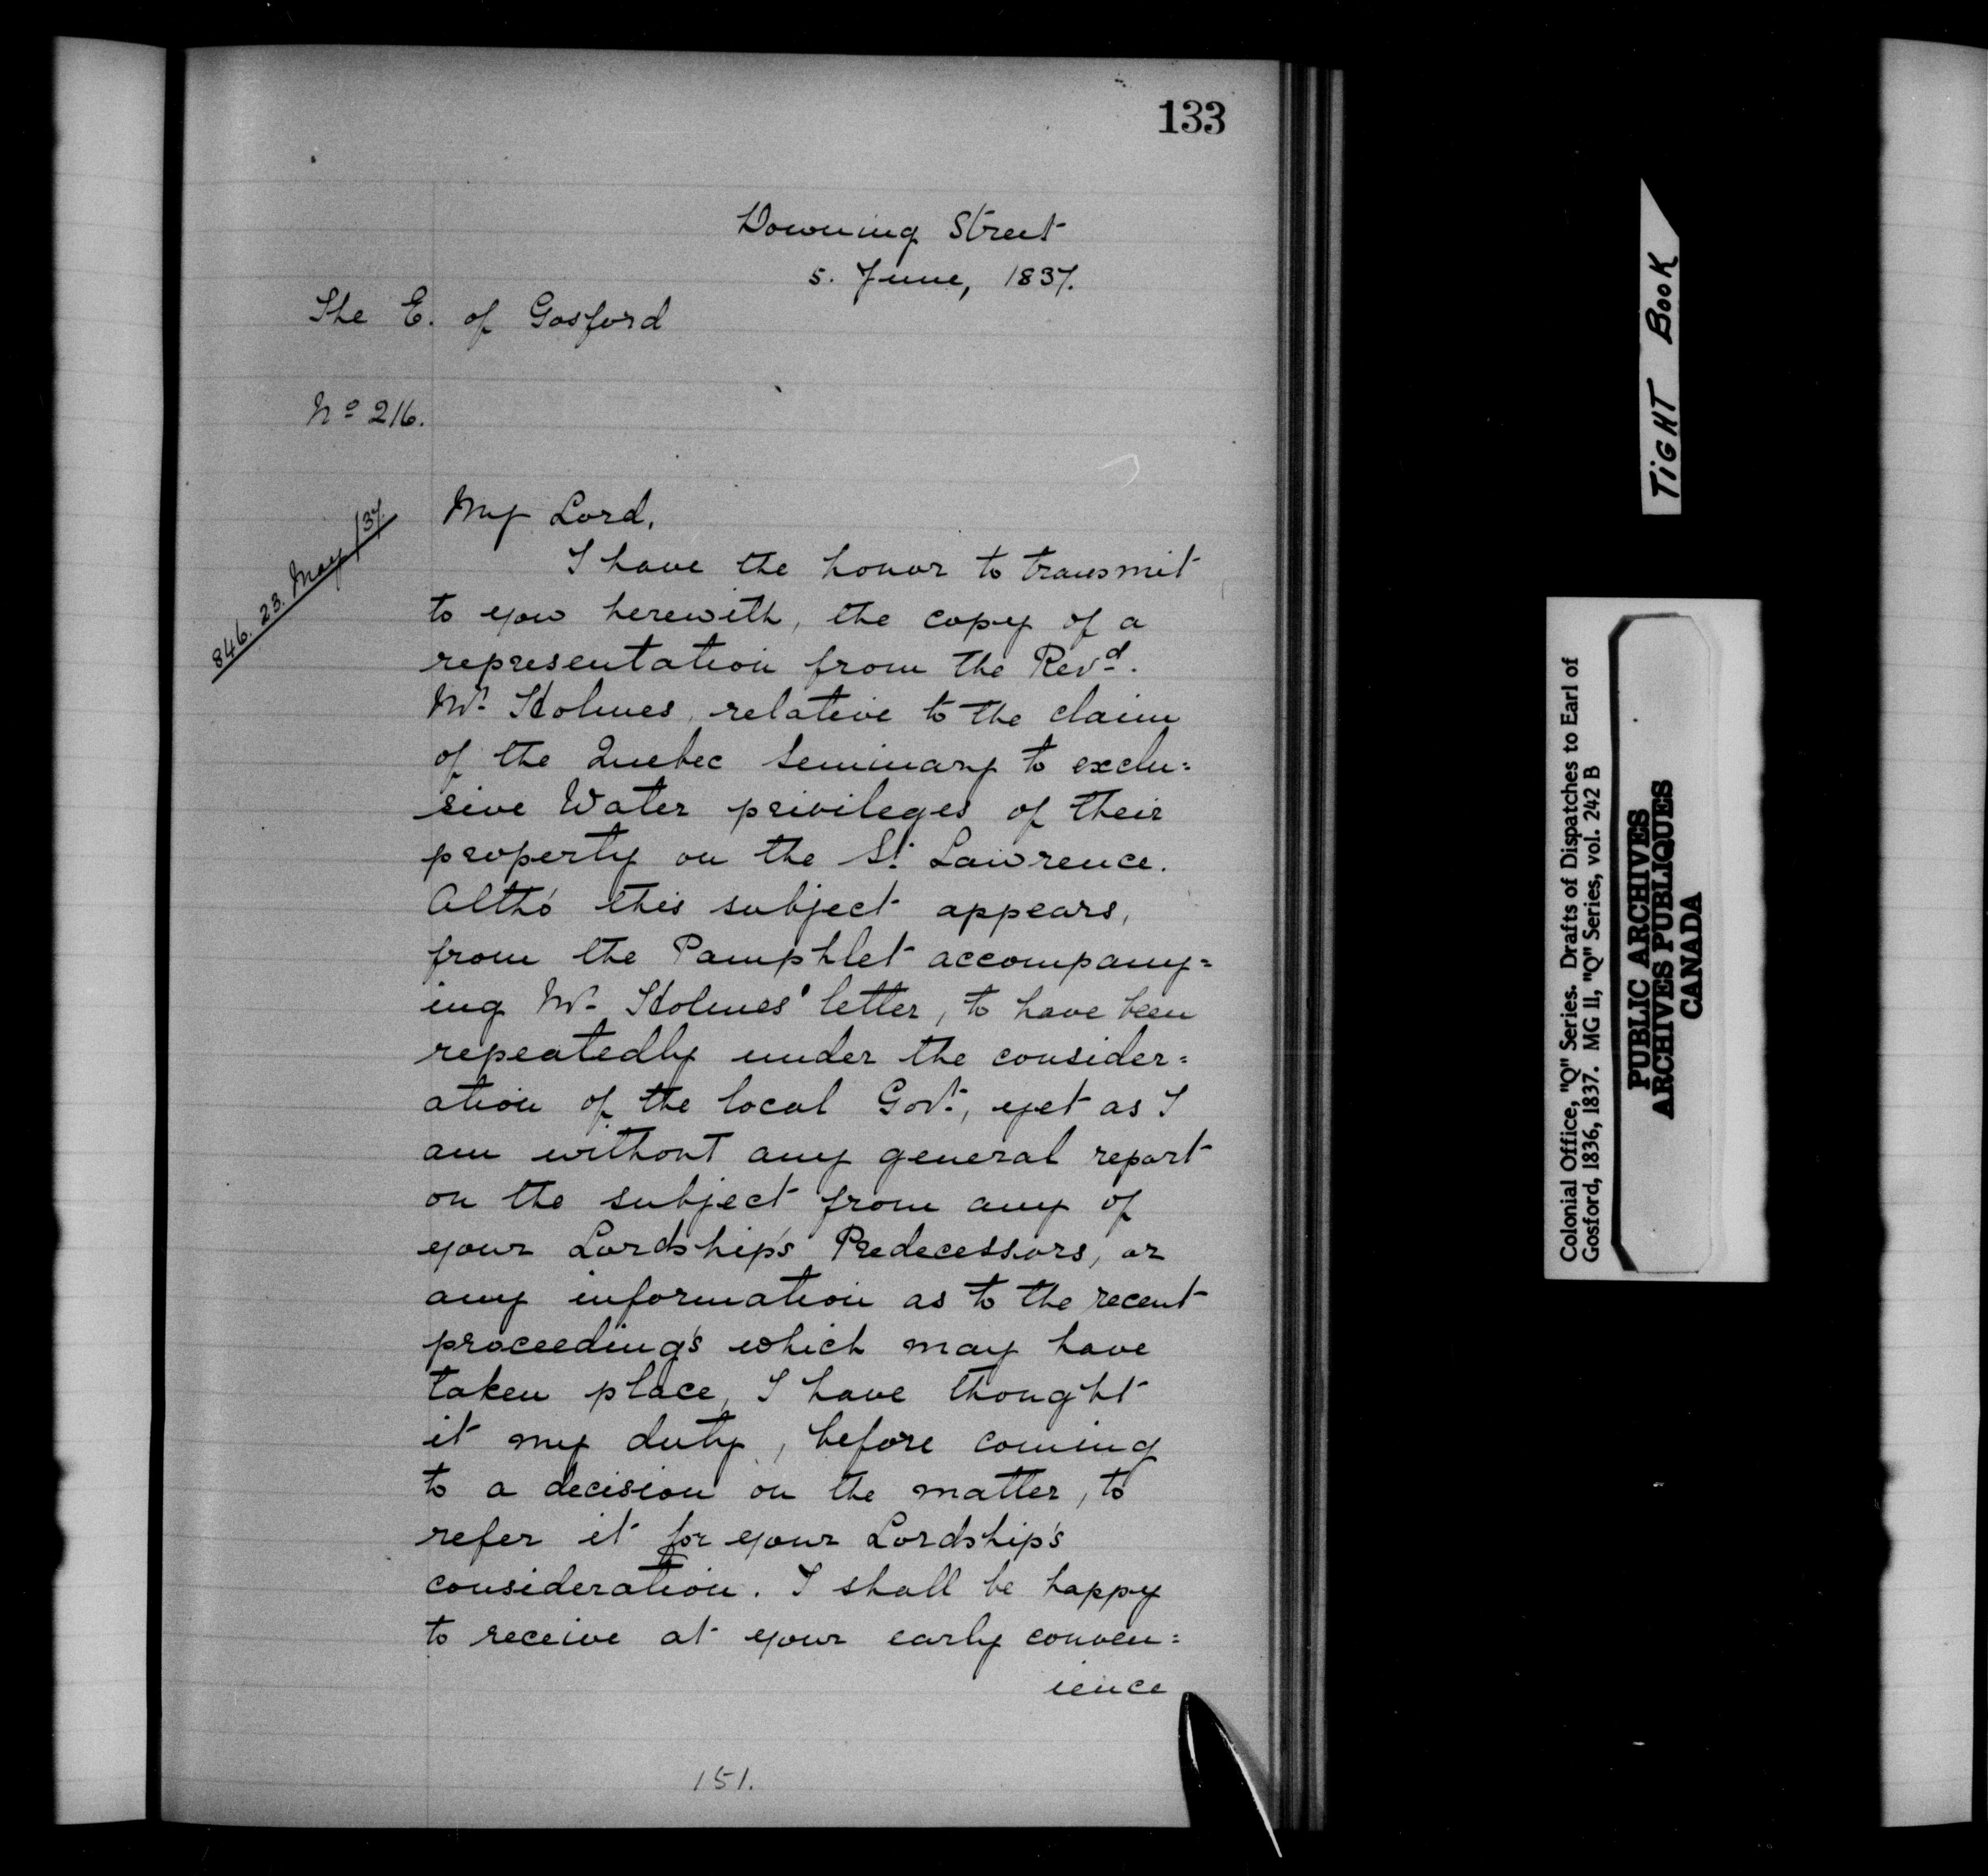 133
Downing Street
5. June, 1837.
The E. of Gosford
No 216.
846. 23. May /37.
My Lord,
I have the honor to transmit
to you herewith, the copy of a
representation from the Revd.
Mr. Holmes, relative to the claim
of the Quebec Seminary to exclu=
sive Water privileges of their
property on the St. Lawrence.
Altho' this subject appears,
from the Pamphlet accompany=
ing Mr. Holmes' letter, to have been
repeatedly under the consider=
ation of the local Govt., yet as I
am without any general report
on the subject from any of
your Lordship's Predecessors, or
any information as to the recent
proceedings which may have
taken place, I have thought
it my duty, before coming
to a decision on the matter, to
refer it for your Lordship's
consideration. I shall be happy
to receive at your early conven=
ience
151.
TIGHT BOOK
Colonial Office, "Q" Series. Drafts of Dispatches to Earl of
Gosford, 1836, 1837. MG 11, "Q" Series, vol. 242 B
PUBLIC ARCHIVES
ARCHIVES PUBLIQUES
CANADA